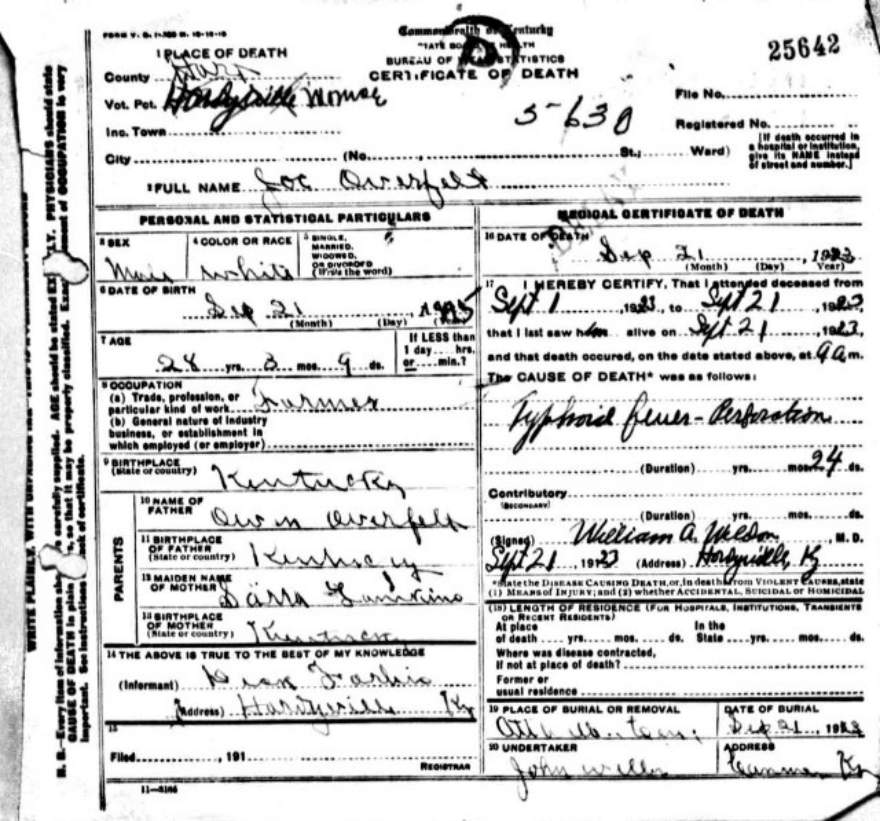 FORM V. S. 1-
Commonwealth of Kentucky
STATE BOARD OF HEALTH
BUREAU OF VITAL STATISTICS
CERTIFICATE OF DEATH
25642
1 PLACE OF DEATH
County Hart
Vot. Pct. Hardyville Monroe
Inc. Town
City (No. , St.; Ward)
File No.
5-630
Registered No.
[If death occurred in a hospital or institution, give its NAME instead of street and number.]
2 FULL NAME Joe Overfelt
PERSONAL AND STATISTICAL PARTICULARS
3 SEX
Male
4 COLOR OR RACE
white
5 SINGLE, MARRIED, WIDOWED, OR DIVORCED (Write the word)
6 DATE OF BIRTH
Sep 21, 1895
(Month) (Day) (Year)
7 AGE
28 yrs. 3 mos. 9 ds.
If LESS than 1 day hrs. or min.?
8 OCCUPATION
(a) Trade, profession, or particular kind of work Farmer
(b) General nature of industry business, or establishment in which employed (or employer)
9 BIRTHPLACE (State or country) Kentucky
PARENTS
10 NAME OF FATHER Owen Overfelt
11 BIRTHPLACE OF FATHER (State or country) Kentucky
12 MAIDEN NAME OF MOTHER
13 BIRTHPLACE OF MOTHER (State or country) Kentucky
14 THE ABOVE IS TRUE TO THE BEST OF MY KNOWLEDGE
(Informant)
(Address) Hardyville Ky
15
Filed , 191
REGISTRAR
11-3184
MEDICAL CERTIFICATE OF DEATH
16 DATE OF DEATH
Sep 21, 1923
(Month) (Day) Year)
17 I HEREBY CERTIFY, That I attended deceased from
Sept 1, 1923, to Sept 21, 1923,
that I last saw him alive on Sept 21, 1923,
and that death occured, on the date stated above, at 9 a m.
The CAUSE OF DEATH* was as follows:
Typhoid fever - Perforation
(Duration) yrs. mos. 24 ds.
Contributory (SECONDARY)
(Duration) yrs. mos. ds.
(Signed) William A. Weldon, M. D.
Sept 21, 1923 (Address) Hardyville, Ky
*State the DISEASE CAUSING DEATH, or, in deaths from VIOLENT CAUSES, state
(1) MEANS OF INJURY; and (2) whether ACCIDENTAL, SUICIDAL or HOMICIDAL
(18) LENGTH OF RESIDENCE (FOR HOSPITALS, INSTITUTIONS, TRANSIENTS OR RECENT RESIDENTS)
At place of death yrs. mos. ds. In the State yrs. mos. ds.
Where was disease contracted, if not at place of death?
Former or usual residence
19 PLACE OF BURIAL OR REMOVAL
DATE OF BURIAL
Sep 21, 1923
20 UNDERTAKER
John
ADDRESS
Canmer Ky